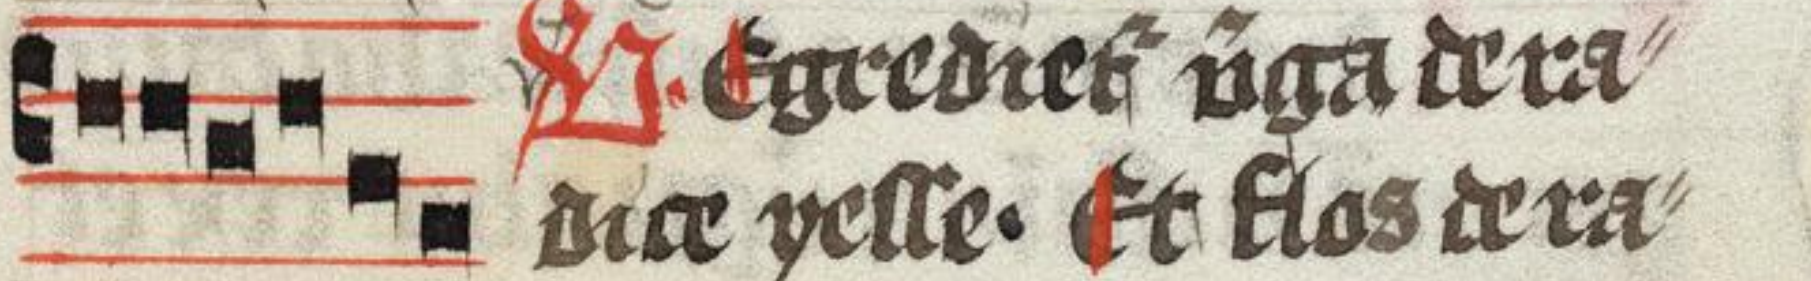 V. Egrediet᷑ v̄ga de ra〃
dice yesse. Et flos de ra〃